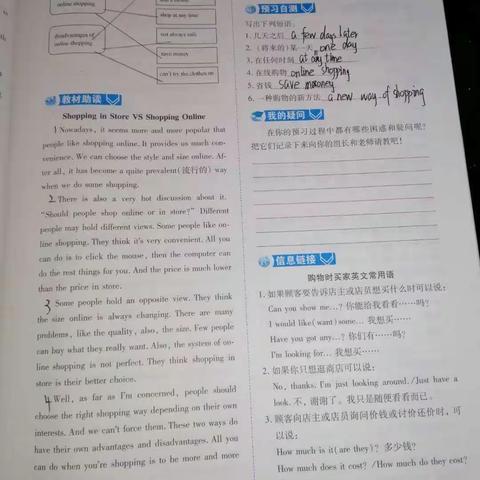 online shopping
shop at any time
disadvantages of
online shopping
not always safe
save money
can't try the clothes on
教材助读
Shopping in Store VS Shopping Online
1 Nowadays, it seems more and more popular that
people like shopping online. It provides us much con-
venience. We can choose the style and size online. Af-
ter all, it has become a quite prevalent(流行的) way
when we do some shopping.
2. There is also a very hot discussion about it.
"Should people shop online or in store?" Different
people may hold different views. Some people like on-
line shopping. They think it's very convenient. All you
can do is to click the mouse, then the computer can
do the rest things for you. And the price is much lower
than the price in store.
3 Some people hold an opposite view. They think
the size online is always changing. There are many
problems, like the quality, also, the size. Few people
can buy what they really want. Also, the system of on-
line shopping is not perfect. They think shopping in
store is their better choice.
4. Well, as far as I'm concerned, people should
choose the right shopping way depending on their own
interests. And we can't force them. These two ways do
have their own advantages and disadvantages. All you
can do when you're shopping is to be more and more
预习自测
写出下列短语。
1. 几天之后 a few days later
2. (将来的)某一天 one day
3. 在任何时刻 at any time
4. 在线购物 online shopping
5. 省钱 save mooney
6. 一种购物的新方法 a new way of shopping
我的疑问
在你的预习过程中都有哪些困惑和疑问呢?
把它们记录下来向你的组长和老师请教吧!
信息链接
购物时买家英文常用语
1. 如果顾客要告诉店主或店员想买什么时可以说:
Can you show me...? 你能给我看看……吗?
I would like(want)some... 我想买……
Have you got any...? 你们有……吗?
I'm looking for... 我想买……
2. 如果你只想逛商店可以说:
No, thanks. I'm just looking around. /Just have a
look. 不,谢谢了。我只是随便看看而已。
3. 顾客向店主或店员询问价钱或讨价还价时,可
以说:
How much is it(are they)? 多少钱?
How much does it cost? /How much do they cost?